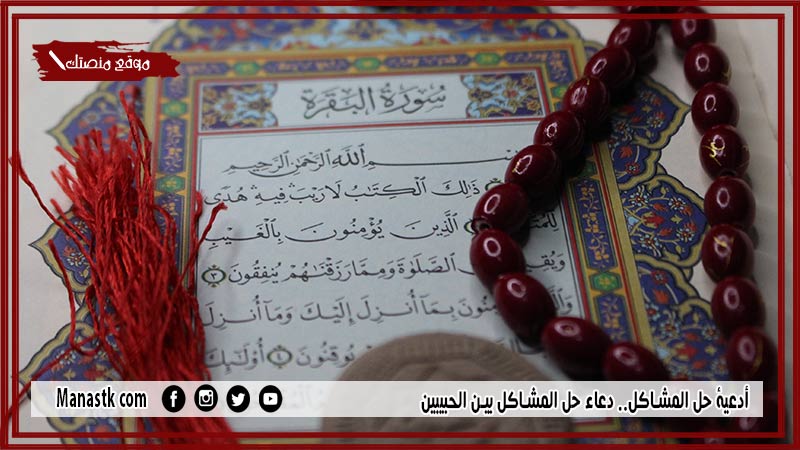 موقع منصتك
سُورَةُ الْبَقَرَة
اللَّهِ الرَّحْمَٰنِ الرَّحِيمِ
ذَٰلِكَ الْكِتَٰبُ لَا رَيْبَ فِيهِ هُدًى
الَّذِينَ يُؤْمِنُونَ بِالْغَيْبِ
الصَّلَوٰةَ وَمِمَّا رَزَقْنَٰهُمْ يُنفِقُونَ ٣
بِمَا أُنزِلَ إِلَيْكَ وَمَا أُنزِلَ
يُوقِنُونَ ٤ أُوْلَٰئِكَ
أدعية حل المشاكل.. دعاء حل المشاكل بين الحبيبين
Manastk com